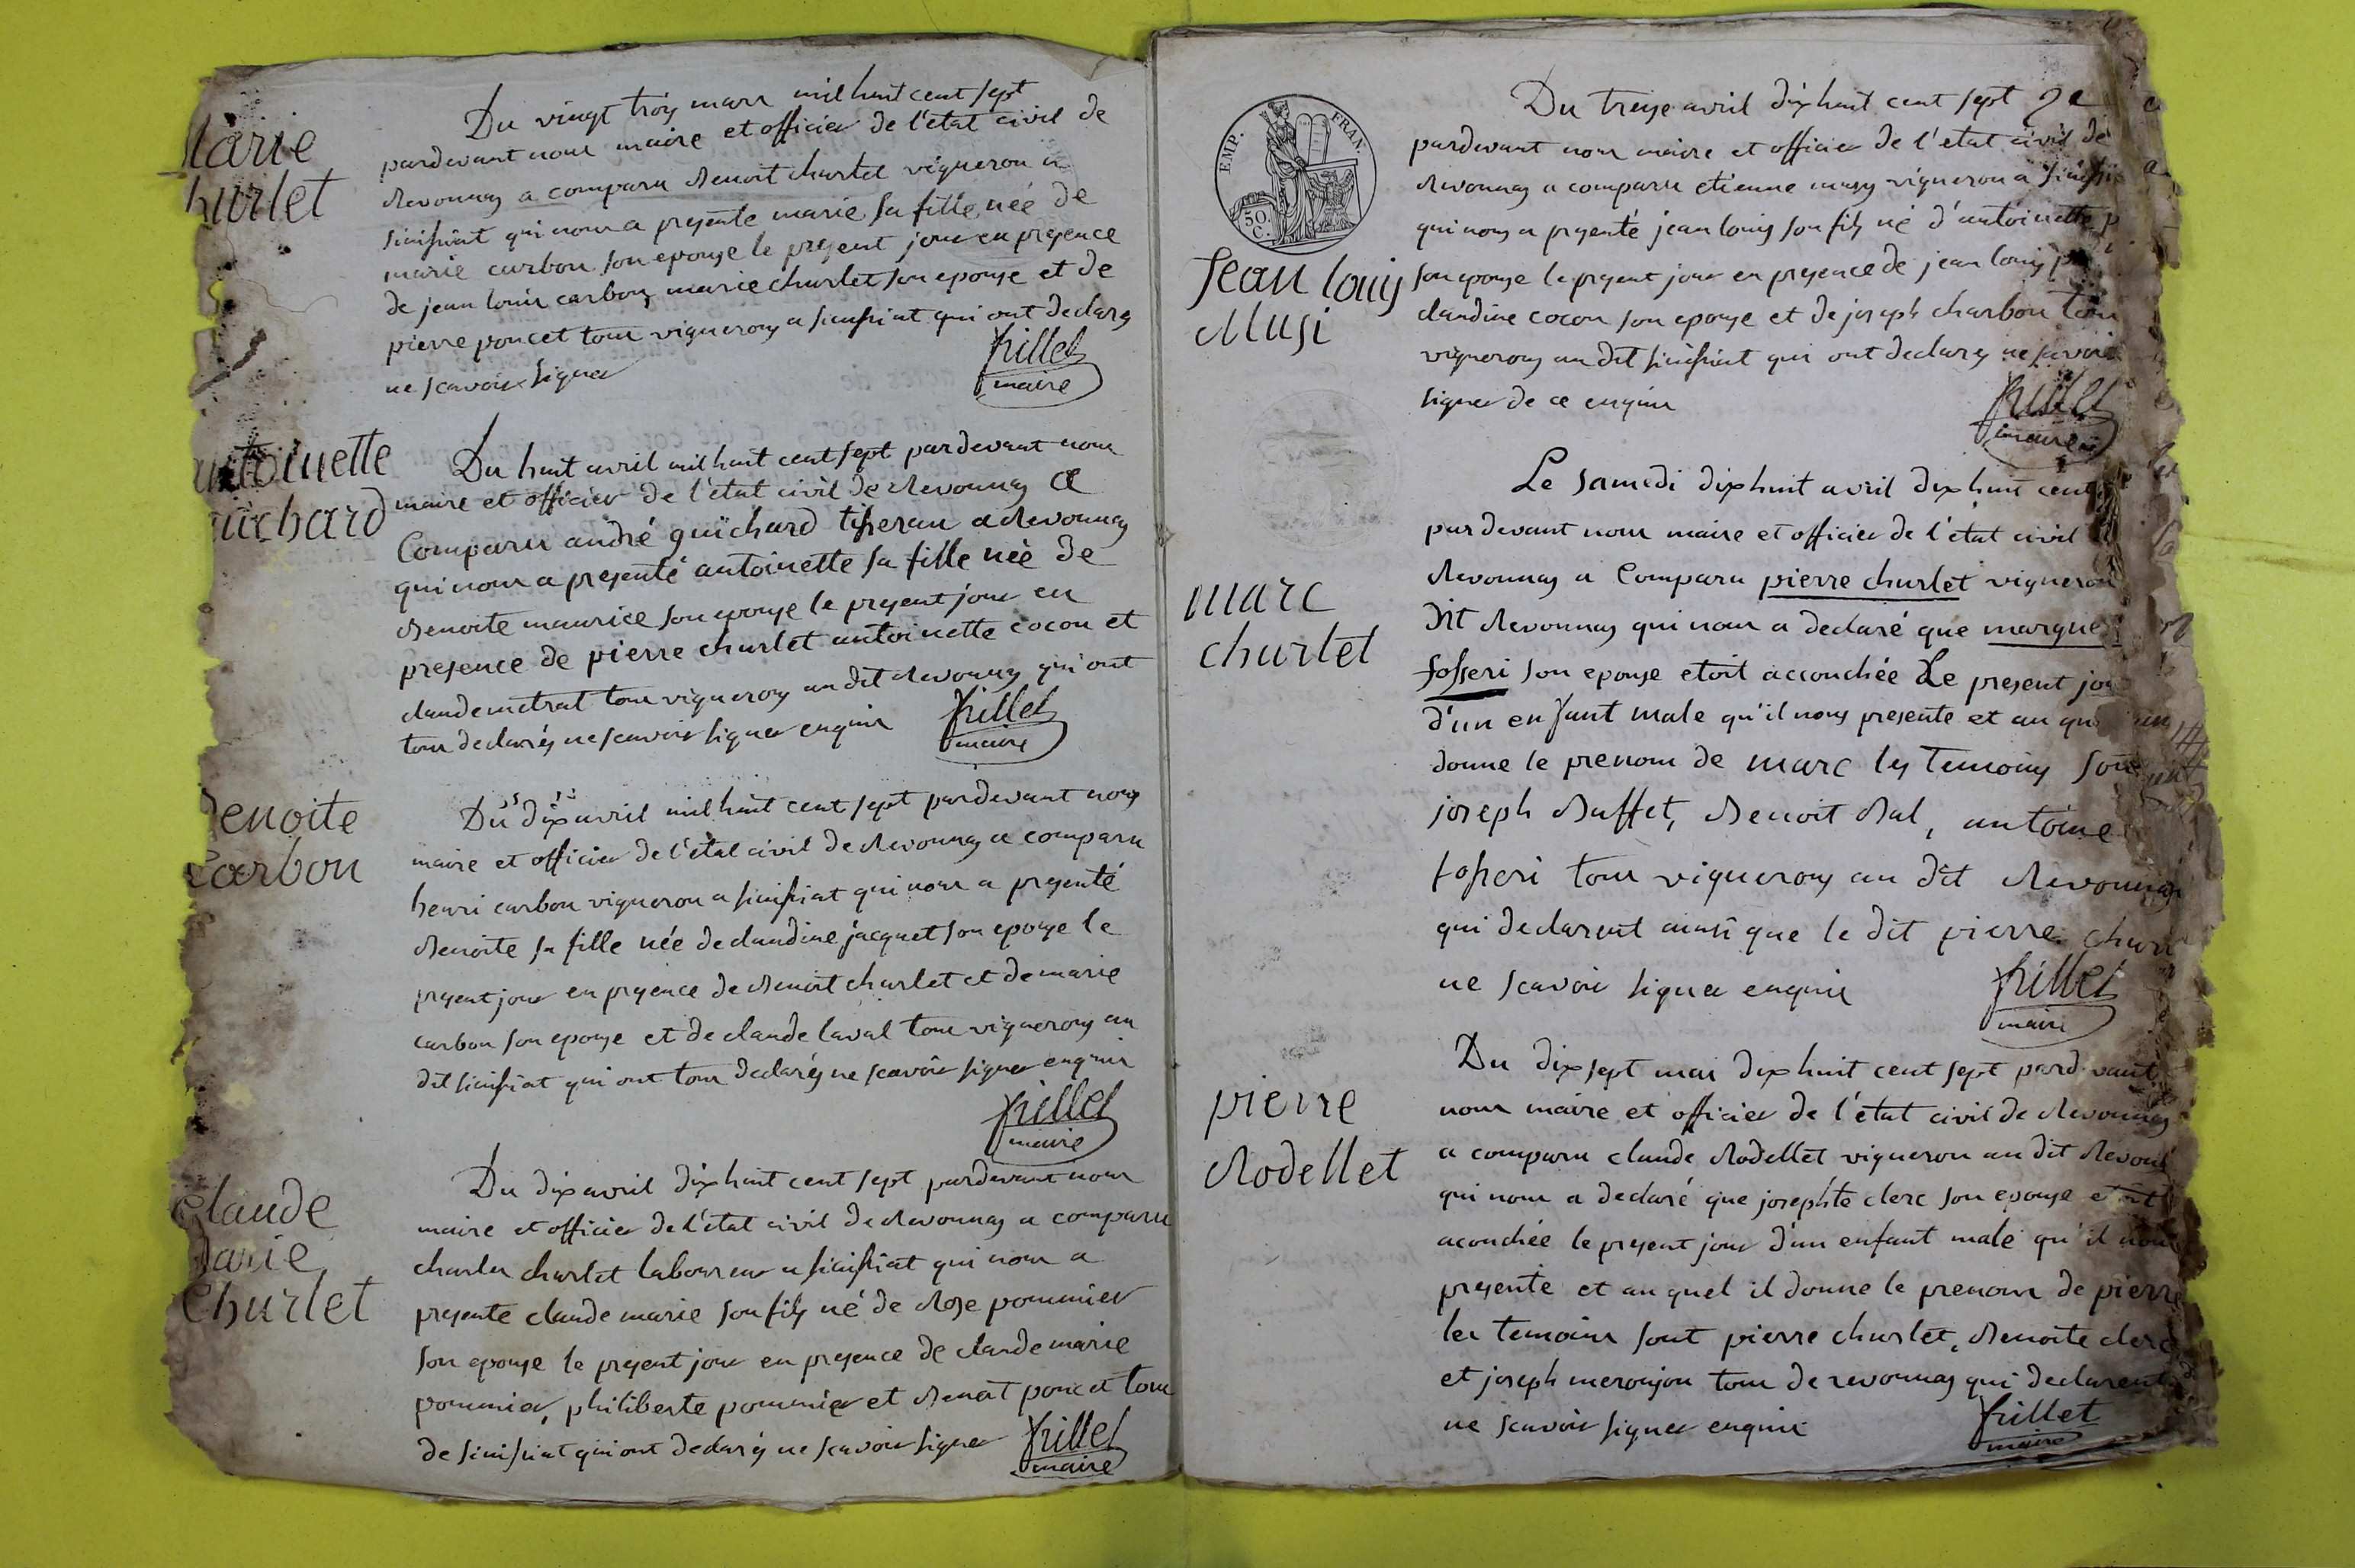 Marie
Churlet
Du vingt trois mars mil huit cent sept
pardevant nous maire et officier de l'état civil de
Revonnas a comparu Benoit churlet vigneron a
simfriat qui nous a presente marie sa fille née de
marie carbon son epouse le present jour en presence
de jean louis carbon marie churlet son epouse et de
pierre poncet tous vignerons a simfriat qui ont declarés
ne scavoir signer
frillet
maire
antoinette
guichard
Du huit avril mil huit cent sept pardevant nous
maire et officier de l'état civil de Revonnas a
Comparu andré guichard tisseran a Revonnas
qui nous a presenté antoinette sa fille née de
Benoite maurice son epouse le present jour en
presence de pierre churlet antoinette cocon et
claude metrat tous vignerons au dit Revonnas qui ont
tous declarés ne scavoir signer enquis
frillet
maire
Benoite
Carbon
Du dix avril mil huit cent sept pardevant nous
maire et officier de l'état civil de Revonnas a comparu
henri carbon vigneron a simfriat qui nous a presenté
Benoite sa fille née de claudine jacquet son epouse le
present jour en presence de Benoit churlet et de marie
carbon son epouse et de claude laval tous vignerons au
dit simfriat qui ont tous declarés ne scavoir signer enquis
frillet
maire
Claude
Marie
Churlet
Du dix avril dix huit cent sept pardevant nous
maire et officier de l'état civil de Revonnas a comparu
charles churlet laboureur a simfriat qui nous a
presente claude marie son fils né de Rose pommier
son epouse le present jour en presence de claude marie
pommier, philiberte pommier et Benoit poncet tous
de simfriat qui ont declarés ne scavoir signer
frillet
maire
EMP. FRAN.
50 C.
Jean louis
Musi
Du treise avril dix huit cent sept
pardevant nous maire et officier de l'état civil de
Revonnas a comparu etienne musy vigneron a simfriat
qui nous a presenté jean louis son fils né d'antoinette
son epouse le present jour en presence de jean louis
claudine cocon son epouse et de joseph charbon tous
vignerons au dit simfriat qui ont declarés ne savoir
signer de ce enquis
frillet
maire
marc
churlet
Le samedi dix huit avril dix huit cent
pardevant nous maire et officier de l'état civil
Revonnas a Comparu pierre churlet vigneron
dit Revonnas qui nous a declaré que marguerite
fosseri son epouse etoit accouchée Le present jour
d'un enfant male qu'il nous presente et au quel
donne le prenom de marc les temoins sont
joseph Buffet, Benoit Bal, antoine
fosseri tous vignerons au dit Revonnas
qui declarent ainsi que le dit pierre churlet
ne scavoir signer enquis
frillet
maire
pierre
Rodellet
Du dix sept mai dix huit cent sept pardevant
nous maire et officier de l'état civil de Revonnas
a comparu claude Rodellet vigneron au dit Revonnas
qui nous a declaré que josephte clerc son epouse etoit
acouchée le present jour d'un enfant male qu'il nous
presente et au quel il donne le prenom de pierre
les temoins sont pierre churlet, Benoite clerc
et joseph meroujon tous de revonnas qui declarent
ne scavoir signer enquis
frillet
maire